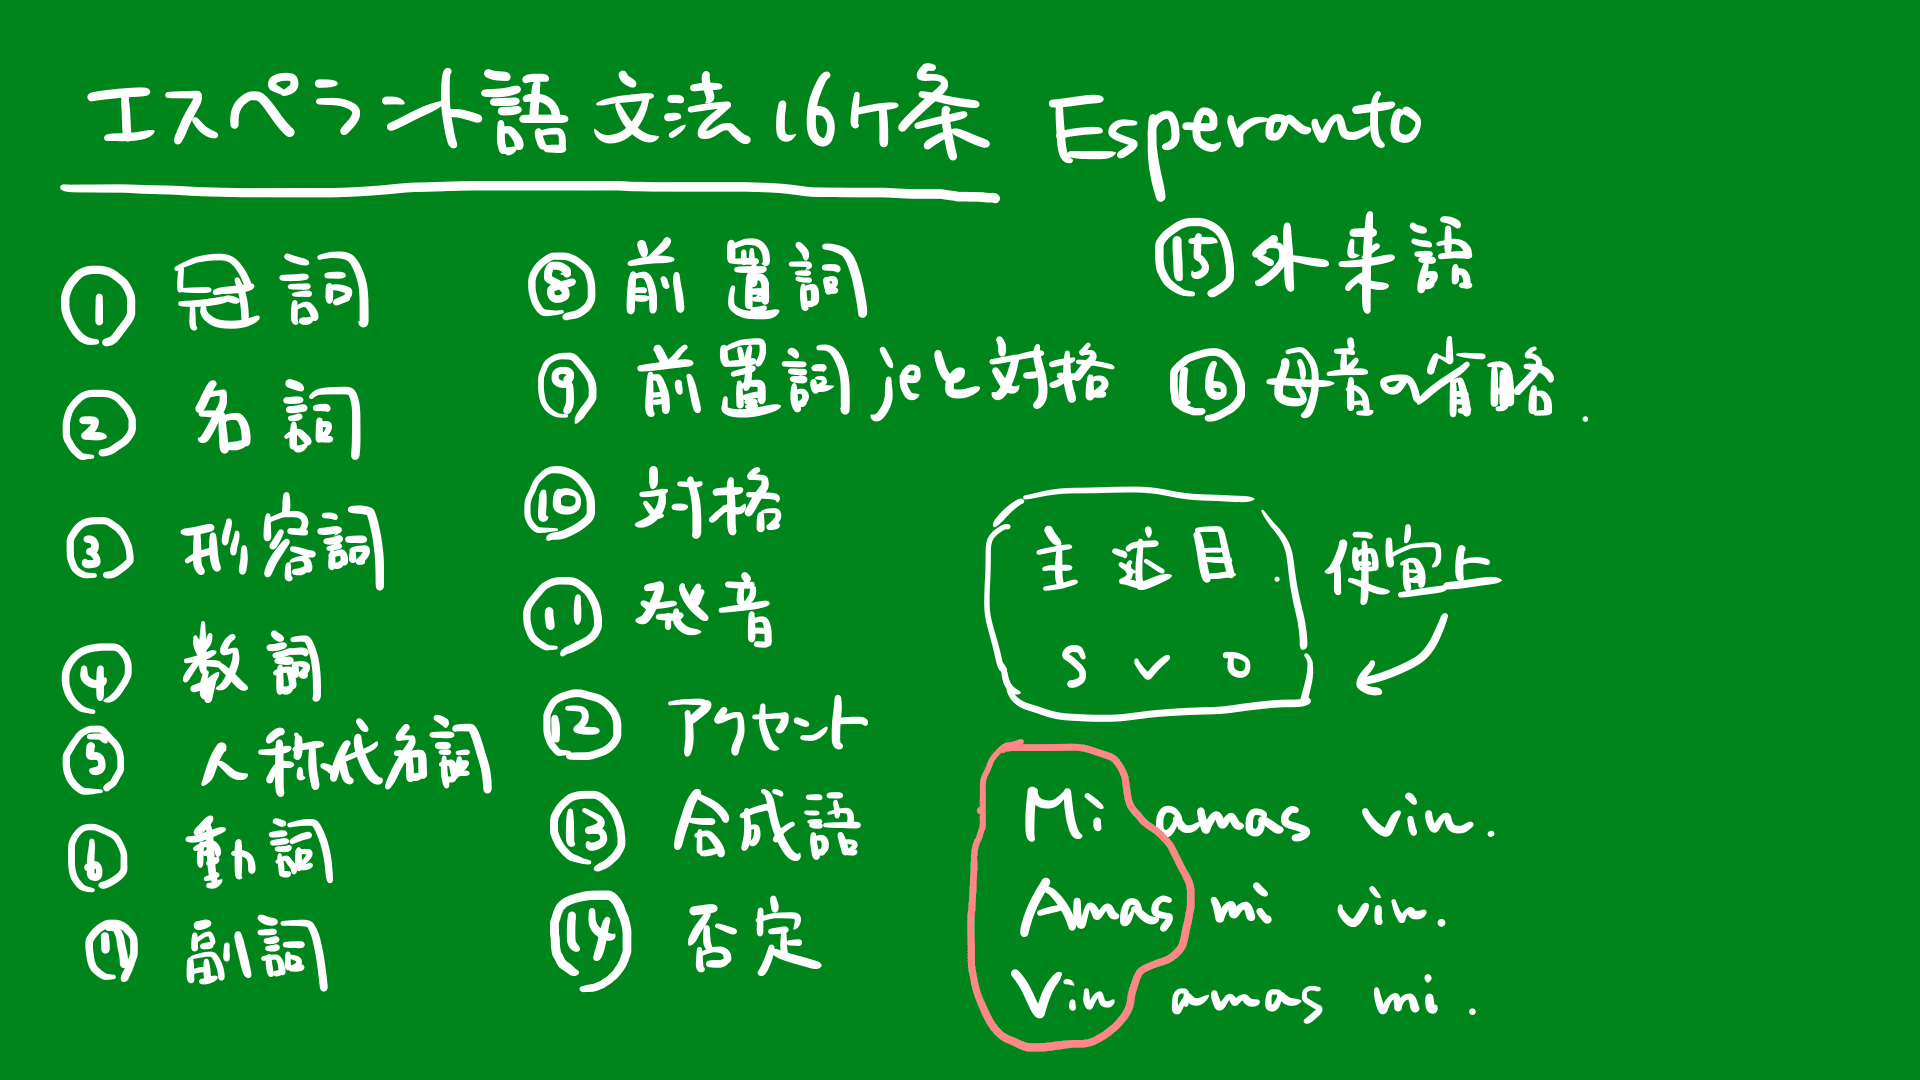 エスペラント語文法16ヶ条 Esperanto
① 冠詞
② 名詞
③ 形容詞
④ 数詞
⑤ 人称代名詞
⑥ 動詞
⑦ 副詞
⑧ 前置詞
⑨ 前置詞jeと対格
⑩ 対格
⑪ 発音
⑫ アクセント
⑬ 合成語
⑭ 否定
⑮ 外来語
⑯ 母音の省略.
主 述 目.
S V O
便宜上
Mi amas vin.
Amas mi vin.
Vin amas mi.